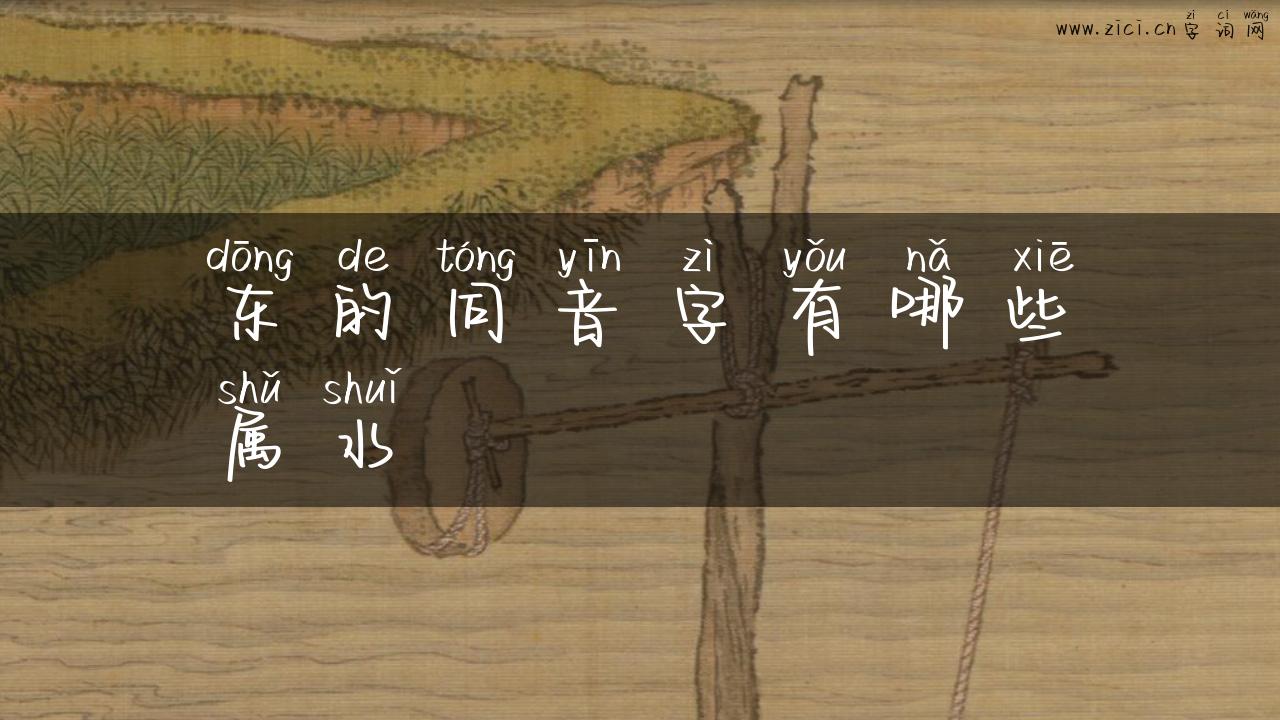 zì cí wǎng
www.zici.cn 字词网
dōng de tóng yīn zì yǒu nǎ xiē
东的同音字有哪些
shǔ shuǐ
属水